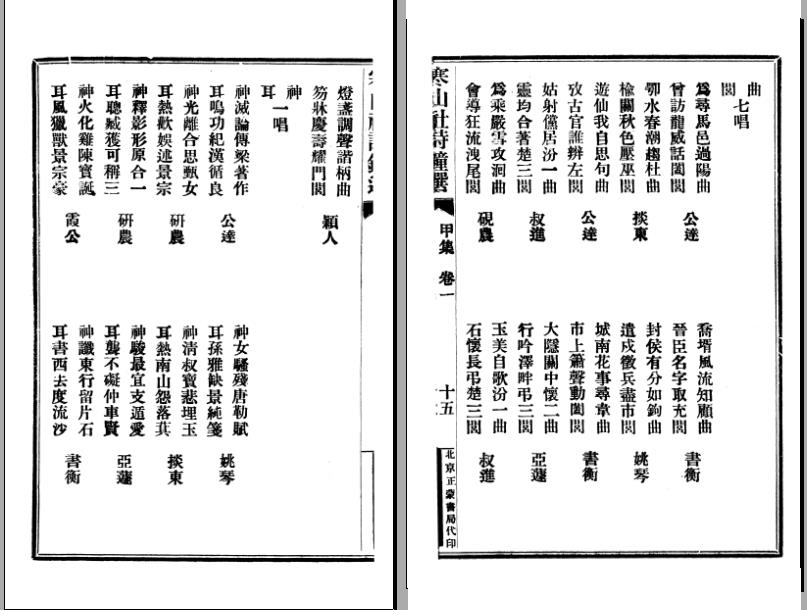 曲
閭 七唱
爲尋馬邑過陽曲
曾訪龍威話闔閭 公達
水春潮趨杜曲
榆關秋色壓巫閭 掞東
遊仙我自思句曲
攷古官誰辨左閭 公達
姑射儻居汾一曲
靈均合著楚三閭 叔進
爲乘嚴雪攻洄曲
會導狂流洩尾閭 硯農
喬壻風流知顧曲
晉臣名字取充閭 書衡
封侯有分如鉤曲
遣戍徵兵盡市閭 姚琴
城南花事尋韋曲
市上簫聲動闔閭 書衡
大隱關中懷二曲
行吟澤畔弔三閭 亞蘧
玉美自歌汾一曲
石懷長弔楚三閭 叔進
寒山社詩鐘選 甲集 卷一 十五
北京正蒙書局代印
燈盞調聲諧柄曲
笏牀慶壽耀門閭 穎人
神
耳 一唱
神滅論傳梁著作
耳鳴功紀漢循良 公達
神光離合思甄女
耳熱歡娛述景宗 研農
神釋影形原合一
耳聰臧獲可稱三 研農
神火化雞陳寶誕
耳風獵獸景宗豪 霞公
神女騷殘唐勒賦
耳孫雅缺景純箋 姚琴
神清叔寶悲埋玉
耳熱南山怨落萁 掞東
神駿最宜支遁愛
耳聾不礙仲車賢 亞蘧
神讖東行留片石
耳書西去度流沙 書衡